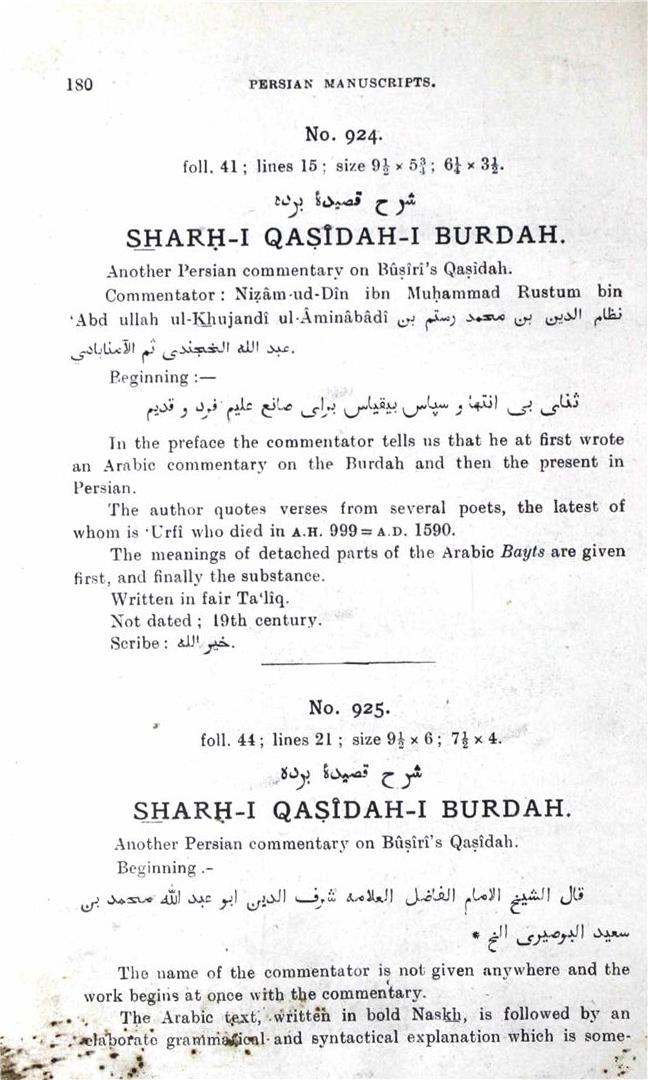 180 PERSIAN MANUSCRIPTS.
No. 924.
foll. 41; lines 15; size 9½ × 5¾; 6¼ × 3½.
شرح قصيدۂ برده
SHARḤ-I QAṢÎDAH-I BURDAH.
Another Persian commentary on Bûṣîrî's Qaṣîdah.
Commentator: Niẓâm-ud-Dîn ibn Muḥammad Rustum bin
‘Abd ullah ul-Khujandî ul-Âminâbâdî نظام الدين بن محمد رستم بن
عبد الله الخجندى ثم الآمنابادي.
Beginning :—
ثناى بى انتها و سپاس بيقياس براى صانع عليم فرد و قديم
In the preface the commentator tells us that he at first wrote
an Arabic commentary on the Burdah and then the present in
Persian.
The author quotes verses from several poets, the latest of
whom is ‘Urfî who died in A.H. 999 = A.D. 1590.
The meanings of detached parts of the Arabic Bayts are given
first, and finally the substance.
Written in fair Ta‘lîq.
Not dated; 19th century.
Scribe: خير الله.
No. 925.
foll. 44; lines 21; size 9½ × 6; 7½ × 4.
شرح قصيدۂ برده
SHARḤ-I QAṢÎDAH-I BURDAH.
Another Persian commentary on Bûṣîrî's Qaṣîdah.
Beginning .-
قال الشيخ الامام الفاضل العلامه شرف الدين ابو عبد الله محمد بن
سعيد البوصيرى الخ *
The name of the commentator is not given anywhere and the
work begins at once with the commentary.
The Arabic text, written in bold Naskh, is followed by an
elaborate grammatical and syntactical explanation which is some-